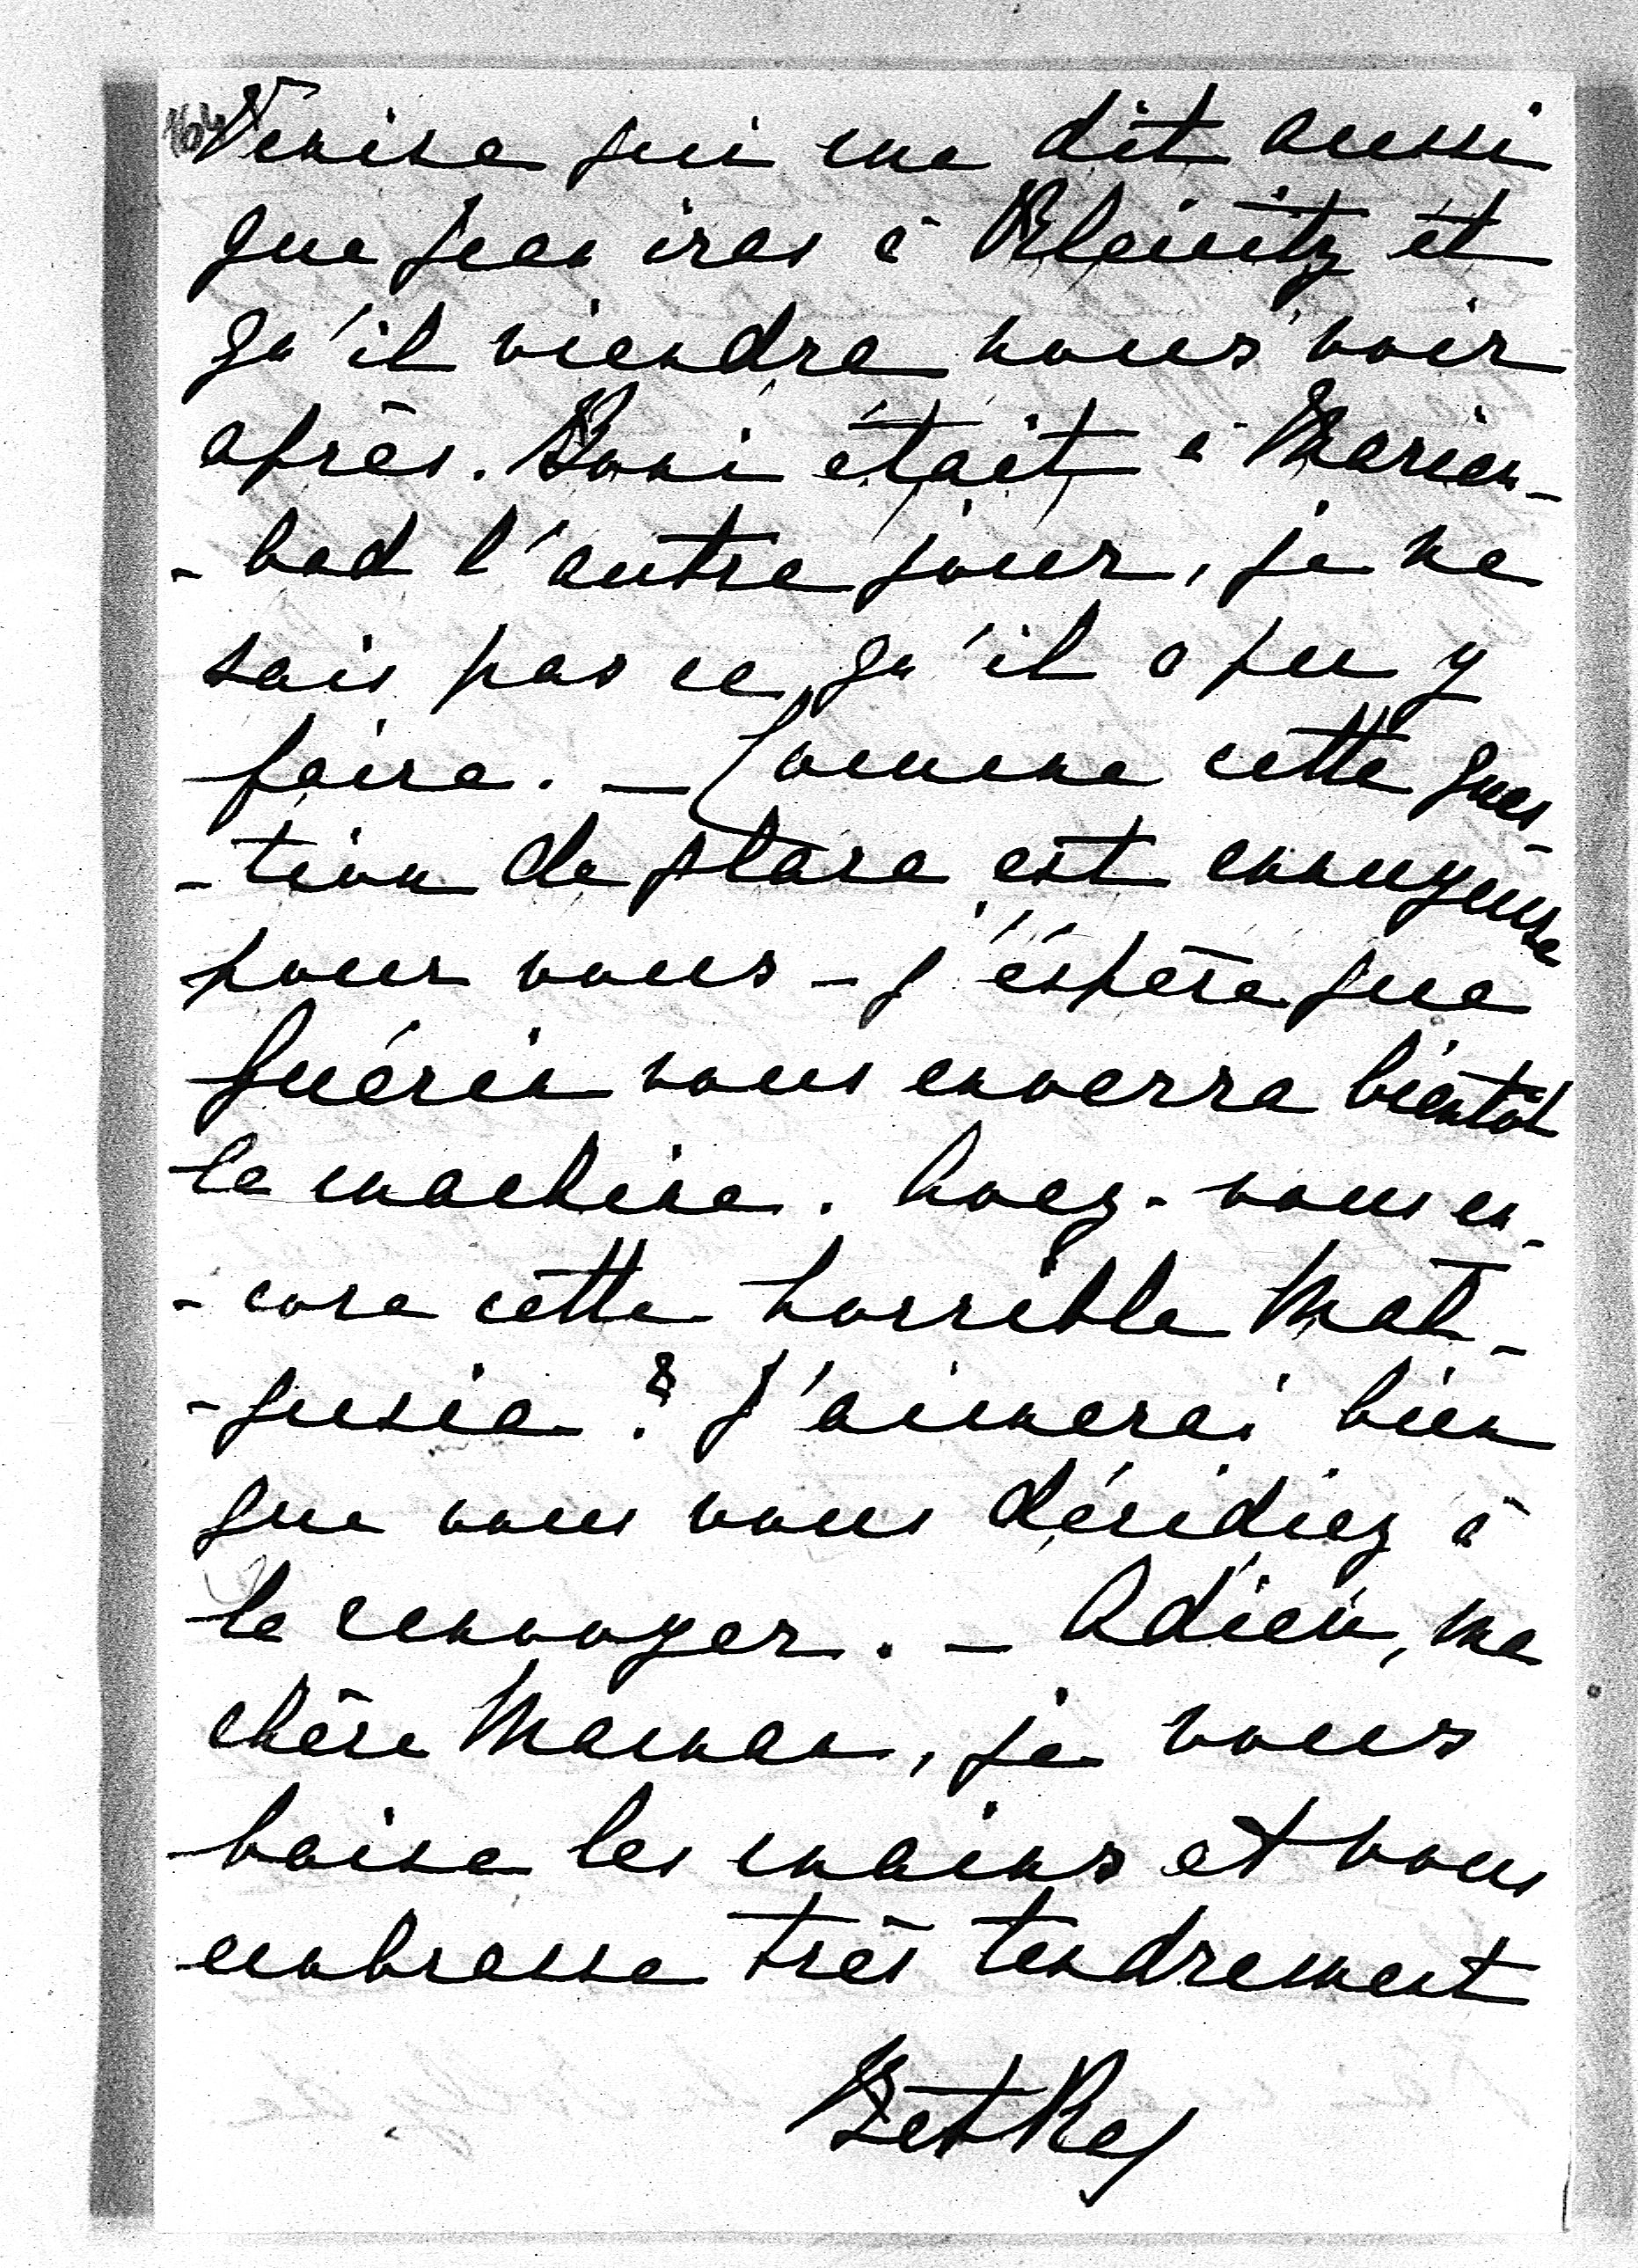 Venise qui me dit aussi
que Jean iras à Pleinitz et
qu'il viendra nous voir
après. Boni était à Marien-
-bad l'autre jour, je ne
sais pas ce qu'il a pu y
faire. — Comme cette ques-
-tion de place est ennuyeuse
pour vous - j'éspère que
Guérin vous enverra bientôt
la machine. Avez-vous en-
-core cette horrible Mal-
-gusia ? J'aimerai bien
que vous vous décidiez à
la renvoyer. — Adieu, ma
chère Maman, je vous
baise les mains et vous
embrasse très tendrement